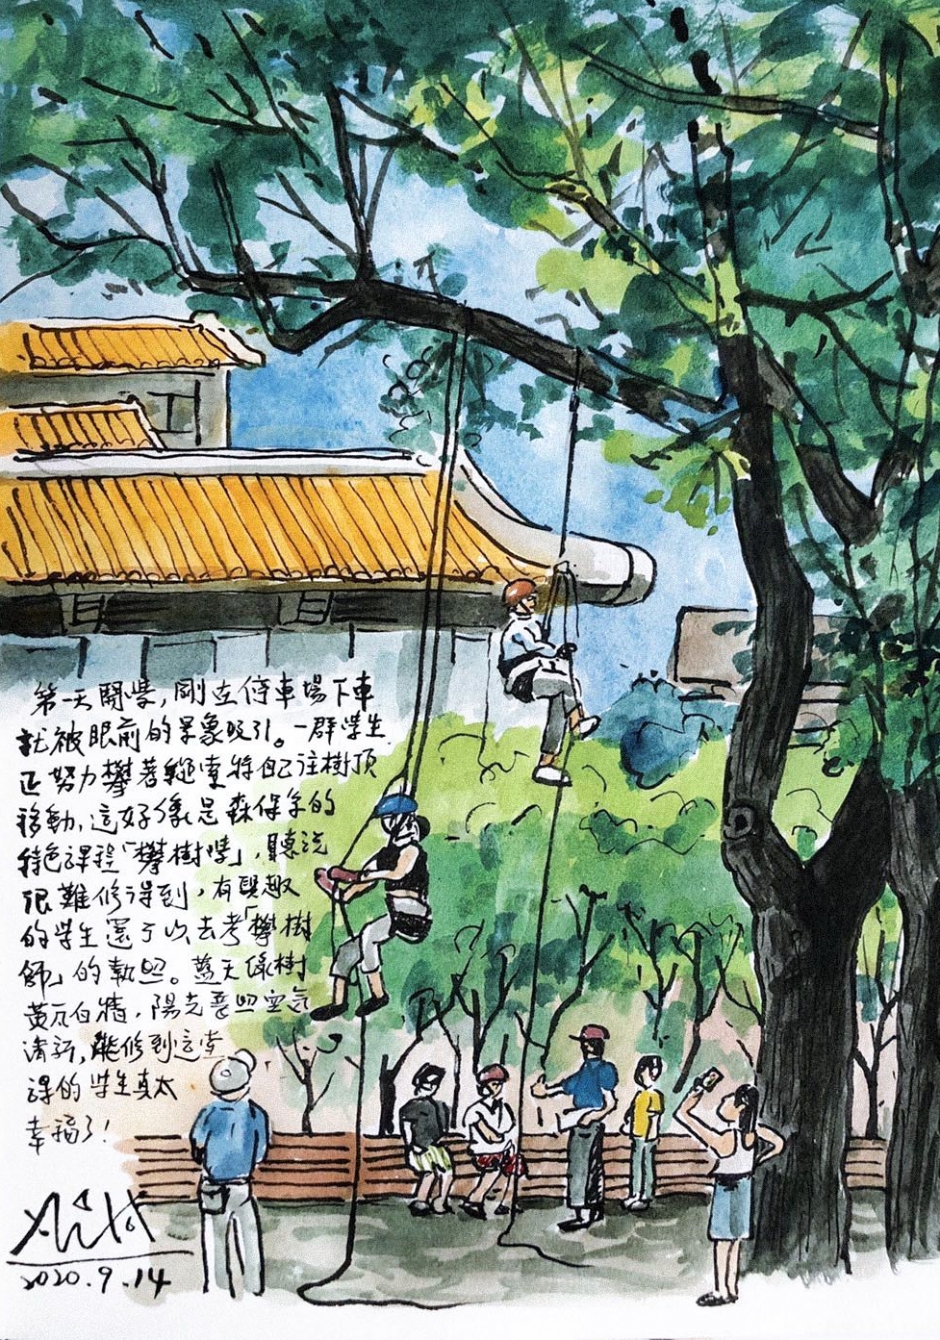 第一天開學，剛在停車場下車
就被眼前的景象吸引。一群學生
正努力攀著繩索將自己往樹頂
移動，這好像是森保系的
特色課程「攀樹學」，聽說
很難修得到，有興趣
的學生還可以去考「攀樹
師」的執照。藍天綠樹
黃瓦白牆，陽光普照空氣
清新，能修到這堂
課的學生真太
幸福了！
2020.9.14